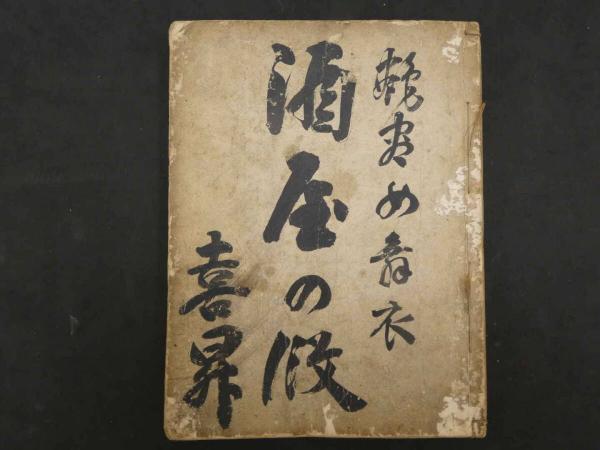 艶容女舞衣
酒屋の段
喜昇